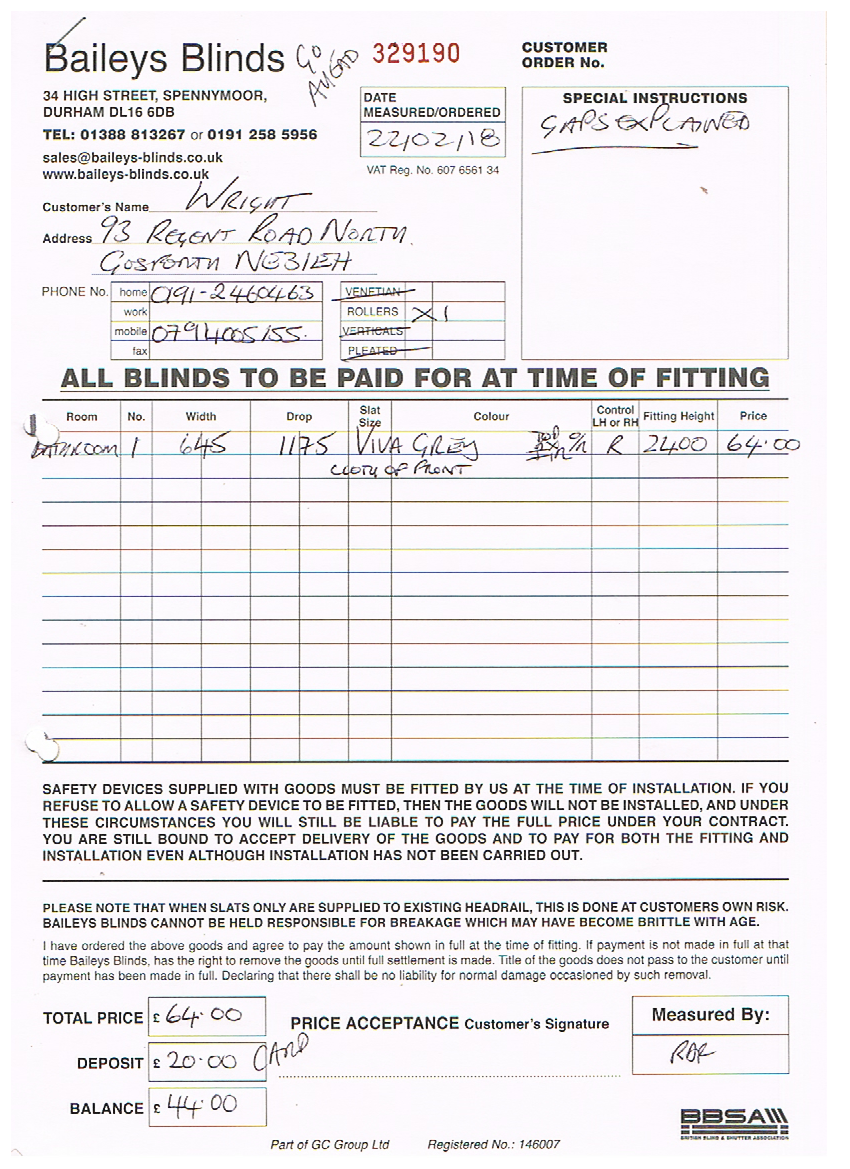 Baileys Blinds
GO AHEAD
329190
34 HIGH STREET, SPENNYMOOR,
DURHAM DL16 6DB
TEL: 01388 813267 or 0191 258 5956
sales@baileys-blinds.co.uk
www.baileys-blinds.co.uk
DATE
MEASURED/ORDERED
22/02/18
VAT Reg. No. 607 6561 34
CUSTOMER
ORDER No.
SPECIAL INSTRUCTIONS
GAPS EXPLAINED
Customer's Name WRIGHT
Address 93 REGENT ROAD NORTH
GOSFORTH NE3 1EH
PHONE No. home 0191-2460463
work
mobile 0794005155
fax
VENETIAN
ROLLERS X 1
VERTICALS
PLEATED
ALL BLINDS TO BE PAID FOR AT TIME OF FITTING
Room No. Width Drop Slat Size Colour Control LH or RH Fitting Height Price
BATHROOM 1 645 1175 VIVA GREY O/R R 2400 64.00
CLOTH OF FRONT
SAFETY DEVICES SUPPLIED WITH GOODS MUST BE FITTED BY US AT THE TIME OF INSTALLATION. IF YOU
REFUSE TO ALLOW A SAFETY DEVICE TO BE FITTED, THEN THE GOODS WILL NOT BE INSTALLED, AND UNDER
THESE CIRCUMSTANCES YOU WILL STILL BE LIABLE TO PAY THE FULL PRICE UNDER YOUR CONTRACT.
YOU ARE STILL BOUND TO ACCEPT DELIVERY OF THE GOODS AND TO PAY FOR BOTH THE FITTING AND
INSTALLATION EVEN ALTHOUGH INSTALLATION HAS NOT BEEN CARRIED OUT.
PLEASE NOTE THAT WHEN SLATS ONLY ARE SUPPLIED TO EXISTING HEADRAIL, THIS IS DONE AT CUSTOMERS OWN RISK.
BAILEYS BLINDS CANNOT BE HELD RESPONSIBLE FOR BREAKAGE WHICH MAY HAVE BECOME BRITTLE WITH AGE.
I have ordered the above goods and agree to pay the amount shown in full at the time of fitting. If payment is not made in full at that
time Baileys Blinds, has the right to remove the goods until full settlement is made. Title of the goods does not pass to the customer until
payment has been made in full. Declaring that there shall be no liability for normal damage occasioned by such removal.
TOTAL PRICE £ 64.00
PRICE ACCEPTANCE Customer's Signature
Measured By:
DEPOSIT £ 20.00 CARD
BALANCE £ 44.00
BBSA
BRITISH BLIND & SHUTTER ASSOCIATION
Part of GC Group Ltd Registered No.: 146007